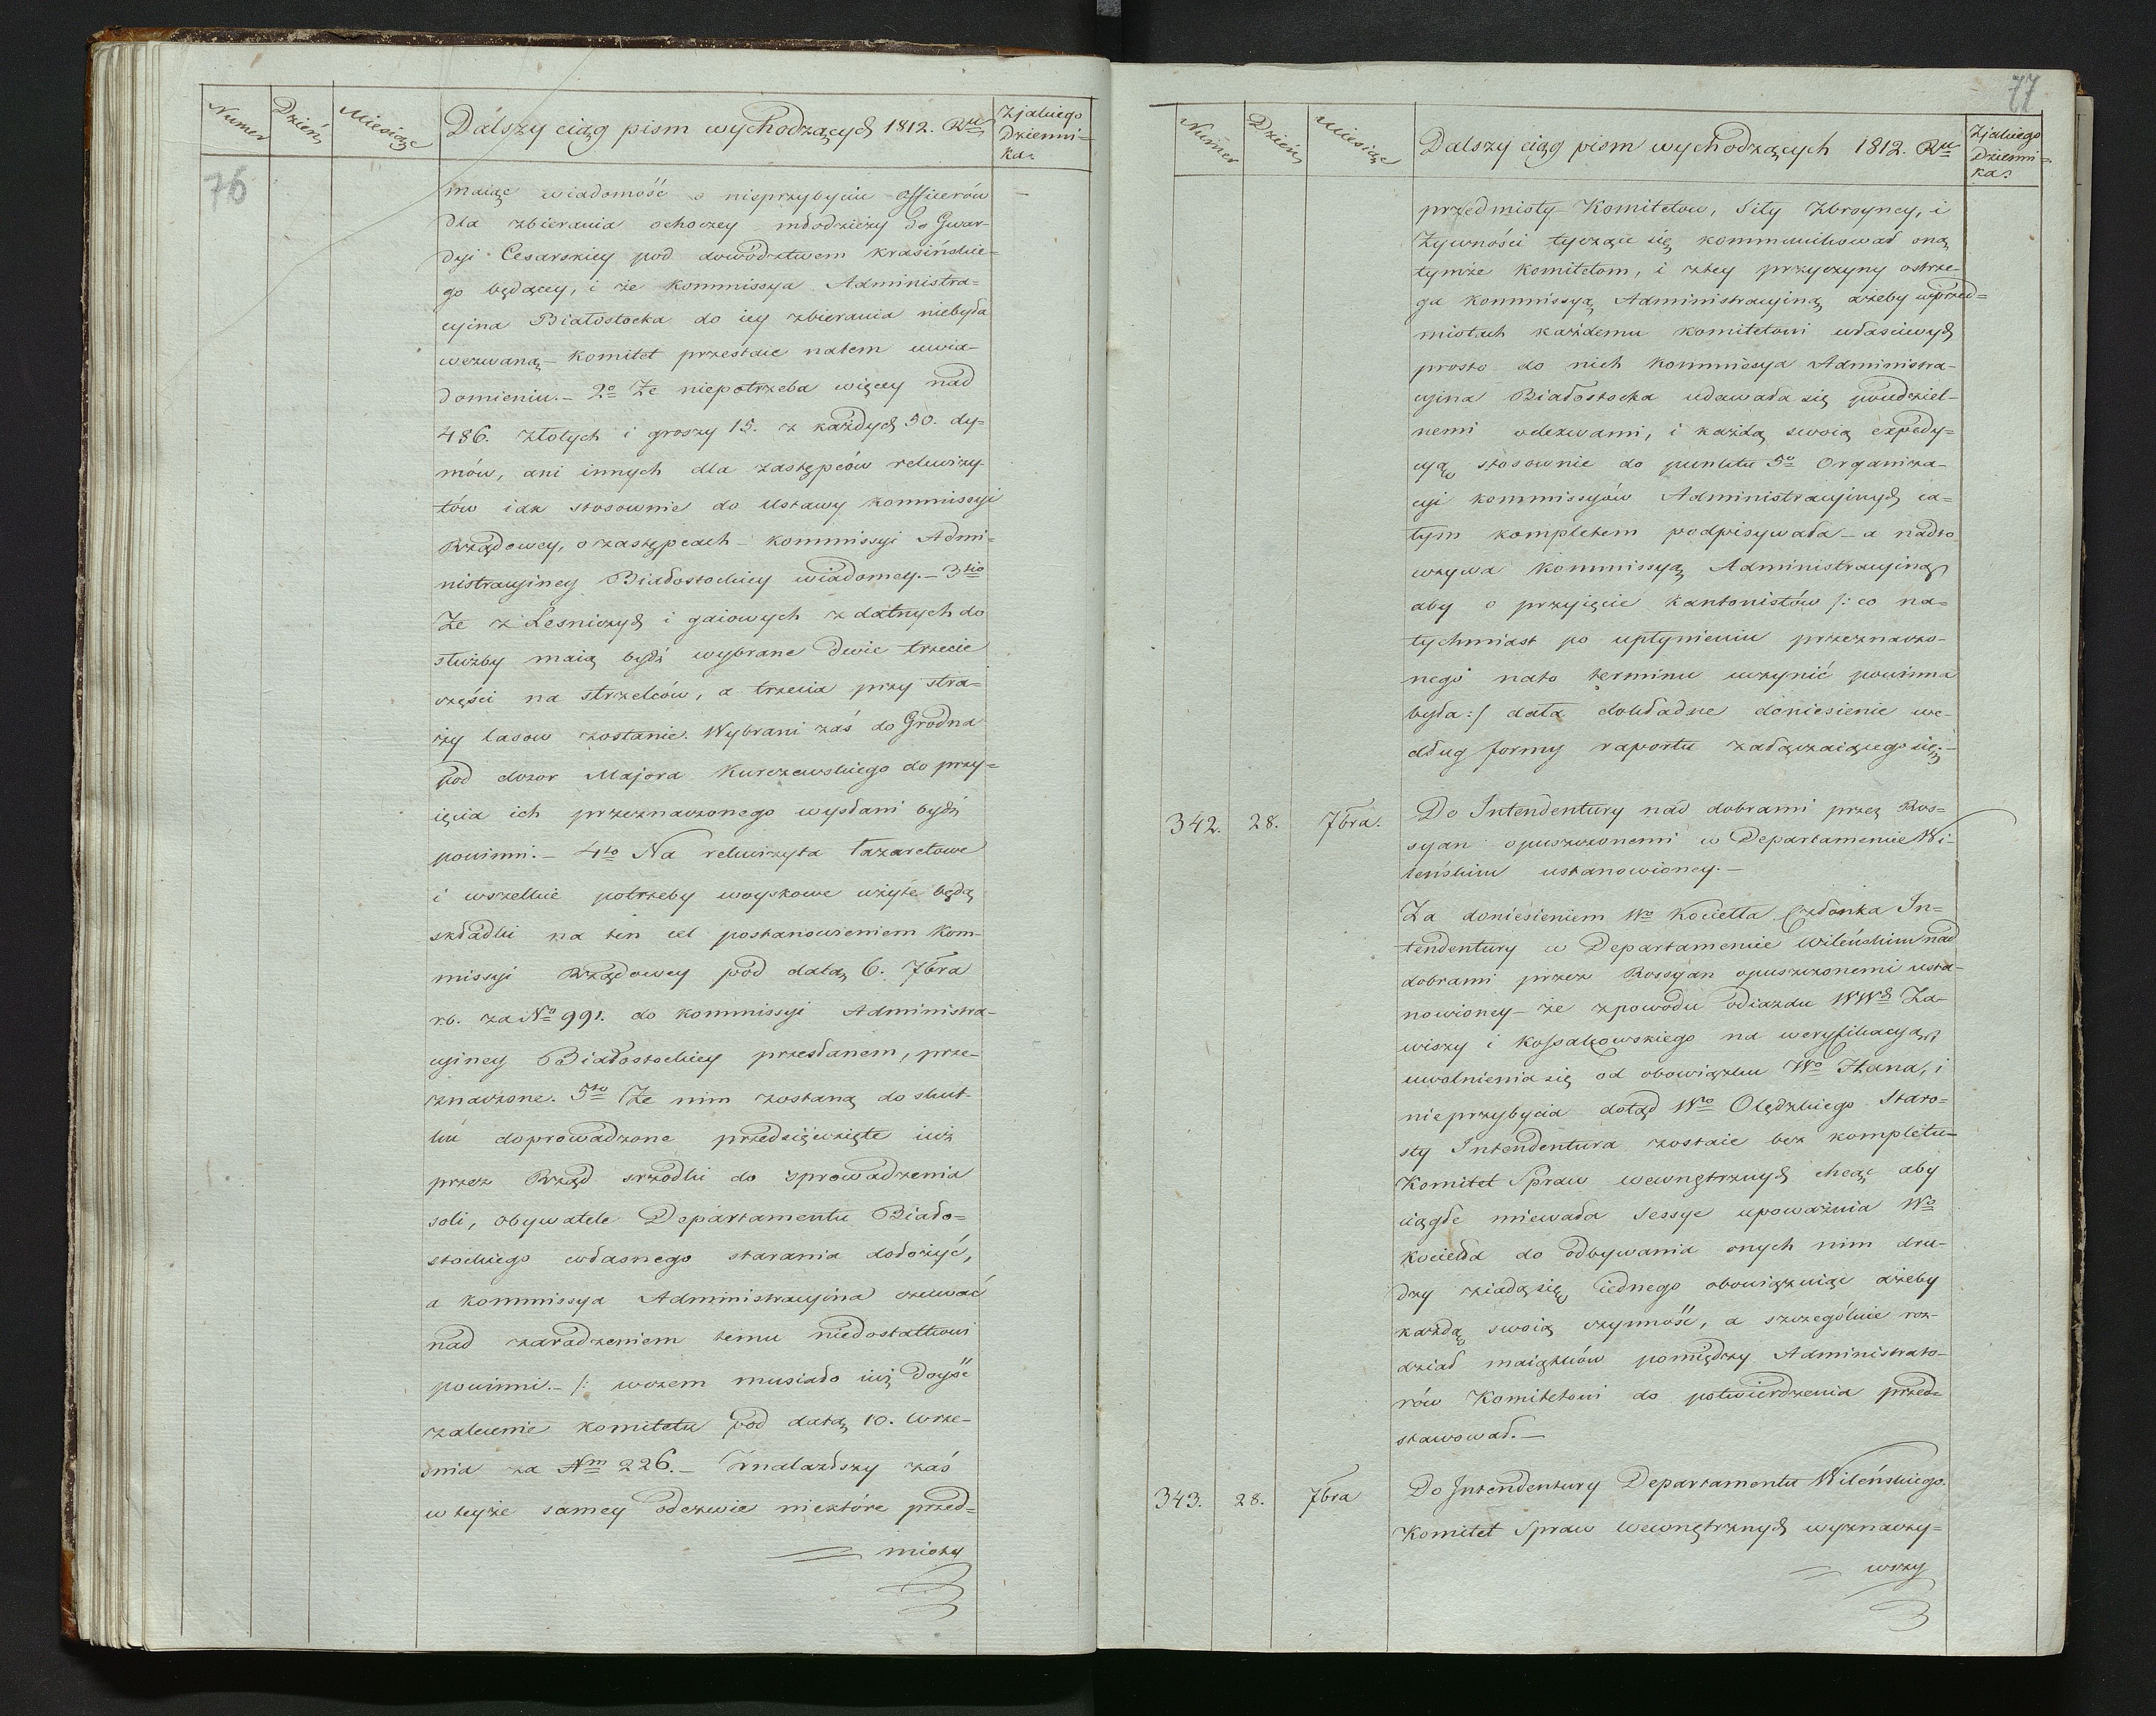 Numer
Dzień
Miesiąc
Dalszy ciąg pism wychodzących 1812. Ru
Z jakiego
Dzienni=
ka.
76
maiąc wiadomość o nieprzybyciu Officerów
dla zbierania ochoczey młodzieży do Gwar-
dyi Cesarskiey pod dowództwem Krasińskie=
go będącey, i że Kommissya Administra=
cyina Białostocka do iey zbierania niebyła
wezwaną – Komitet przestaie natem uwia-
domieniu. – 2o Że niepotrzeba więcey nad
486. złotych i groszy 15. z każdych 50. dy=
mów, ani innych dla zastępców rekwizy-
tów iak stosownie do Ustawy Kommissyi
Rządowey, o zastępcach – Kommissyi Admi=
nistracyiney Białostockiey wiadomey. – 3tio
Że z Lesniczych i gaiowych zdatnych do
służby maią bydź wybrane dwie trzecie
części na strzelców, a trzecia przy stra=
ży lasow zostanie. Wybrani zaś do Grodna
pod dozor Majora Kurczewskiego do przy=
ięcia ich przeznaczonego wysłani bydź
powinni. – 4to Na rekwizyta lazaretowe
i wszelkie potrzeby woyskowe użyte będą
składki na ten cel postanowieniem Kom-
missyi Rządowey pod datą 6. 7bra
r.b. za No 991. do Kommissyi Administra-
cyiney Białostockiey przesłanem, prze-
znaczone. 5to Że nim zostaną do skut-
ku doprowadzone przedsięwzięte iuż
przez Rząd srzodki do sprowadzenia
soli, obywatele Departamentu Biało=
stockiego własnego starania dołożyć,
a Kommissya Administracyina czuwać
nad zaradzeniem temu niedostatkowi
powinni. – /: wczem musiało iuż doyść
zalecenie Komitetu pod datą 10. Wrze-
snia za Nm 226. – Znalazłszy zaś
w teyże samey odezwie niektóre przed=
mioty
77
Numer
Dzień
Miesiąc
Dalszy ciąg pism wychodzących 1812. Ru
Z jakiego
Dzienni=
ka.
przedmioty Komitetow, Siły Zbroyney, i
Żywności tyczące się kommunikował oną
tymże Komitetom, i ztey przyczyny ostrze-
ga Kommissyą Administracyiną ażeby wprzed=
miotach każdemu Komitetowi właściwych
prosto do nich Kommissya Administra-
cyina Białostocka udawała się pouedziel-
nemi odezwami, i każdą swoią expedy=
cyą stosownie do punktu 5o Organiza-
cyi Kommissyów Administracyinych ca=
łym kompletem podpisywała – a nadto
wzywa Kommissyą Administracyiną
aby o przyięcie Kantonistów /: co na=
tychmiast po upłynieniu przeznaczo-
nego nato terminu uczynić powinna
była :/ dała dokładne doniesienie we-
dług formy raportu załączaiącego się. –
342. 28. 7bra. Do Intendentury nad dobrami przez Ros=
syan opuszczonemi w Departamencie Wi-
leńskim ustanowioney. –
Za doniesieniem Wo Kociełła Członka In=
tendentury w Departamencie Wileńskim nad
dobrami przez Rossyan opuszczonemi usta-
nowioney – że zpowodu odiazdu WWch Za-
wiszy i Kossakowskiego na weryfikacyą,
uwolnienia się od obowiązku Wo Hana, i
nieprzybycia dotąd Wo Olędzkiego Staro=
sty Intendentura zostaie bez kompletu –
Komitet Spraw wewnętrznych chcąc aby
ciągłe miewała Sessye upoważnia Wo
Kociełła do odbywania onych nim dru-
dzy ziadą się iednego obowiązuiąc ażeby
każdą swoią czynność, a szczególnie roz-
dział maiątków pomiędzy Administrato-
rów Komitetowi do potwierdzenia przed=
stawował. –
343. 28. 7bra Do Intendentury Departamentu Wileńskiego.
Komitet Spraw Wewnętrznych wyznaczy=
wszy